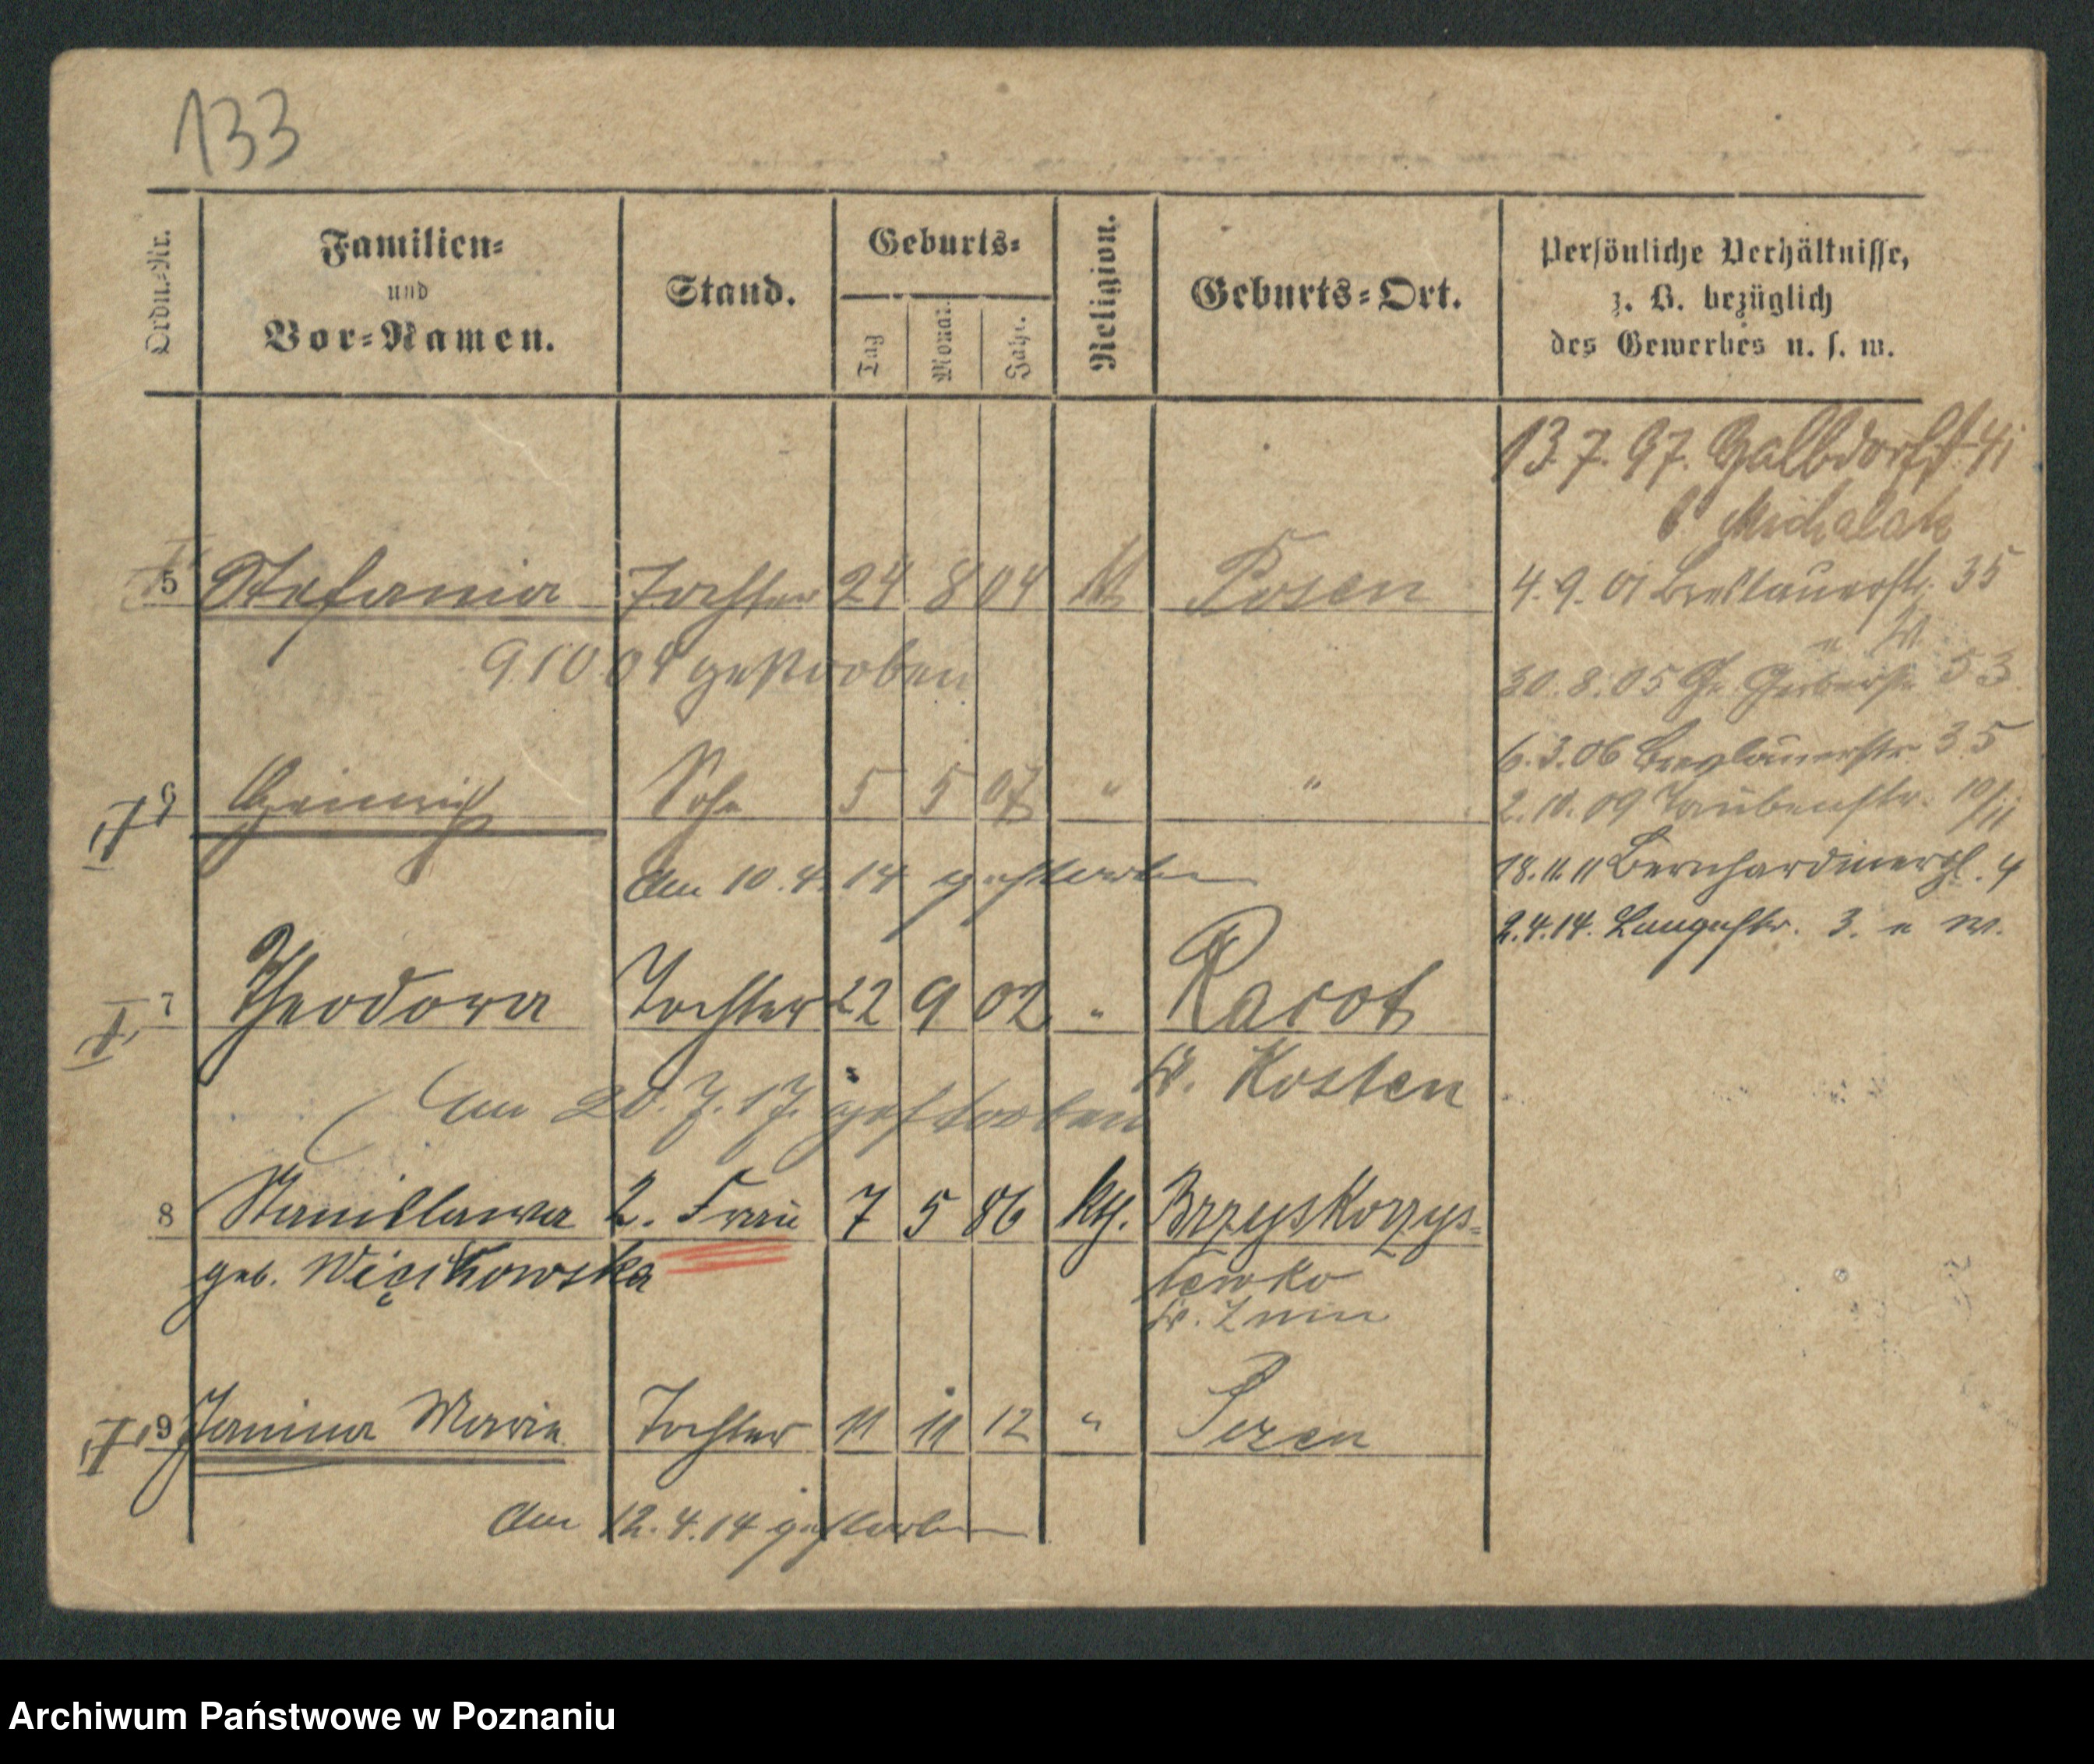 133
Ordn.-Nr.
Familien-
und
Vor-Namen.
Stand.
Geburts-
Tag
Monat.
Jahr.
Religion.
Geburts-Ort.
Persönliche Verhältnisse,
z. B. bezüglich
des Gewerbes u. s. w.
13.7.97.
b. Michalak
5 Stefania Tochter 24 8 04 Posen
4.9.01 Breslauerstr. 35
9 10 04 gestorben
30.8.05 Gr. Gerberstr. 53
6 Heinrich Sohn 5 5 07 " "
6.3.06 Breslauerstr. 35
2.10.09 Taubenstr. 10/11
am 10.4.14 gestorben
18.11.11 Bernhardinerpl. 4
2.4.14. Langestr. 3.
7 Theodora Tochter 22 9 02 " Racot
Kr. Kosten
am 20.7.17. gestorben
8 Stanislawa 2. Frau 7 5 86 kth. Brzyskorzys-
geb. Więckowska
tewko
Kr. Znin
9 Janina Marie Tochter 11 11 12 " Posen
am 12.4.14 gestorben
Archiwum Państwowe w Poznaniu